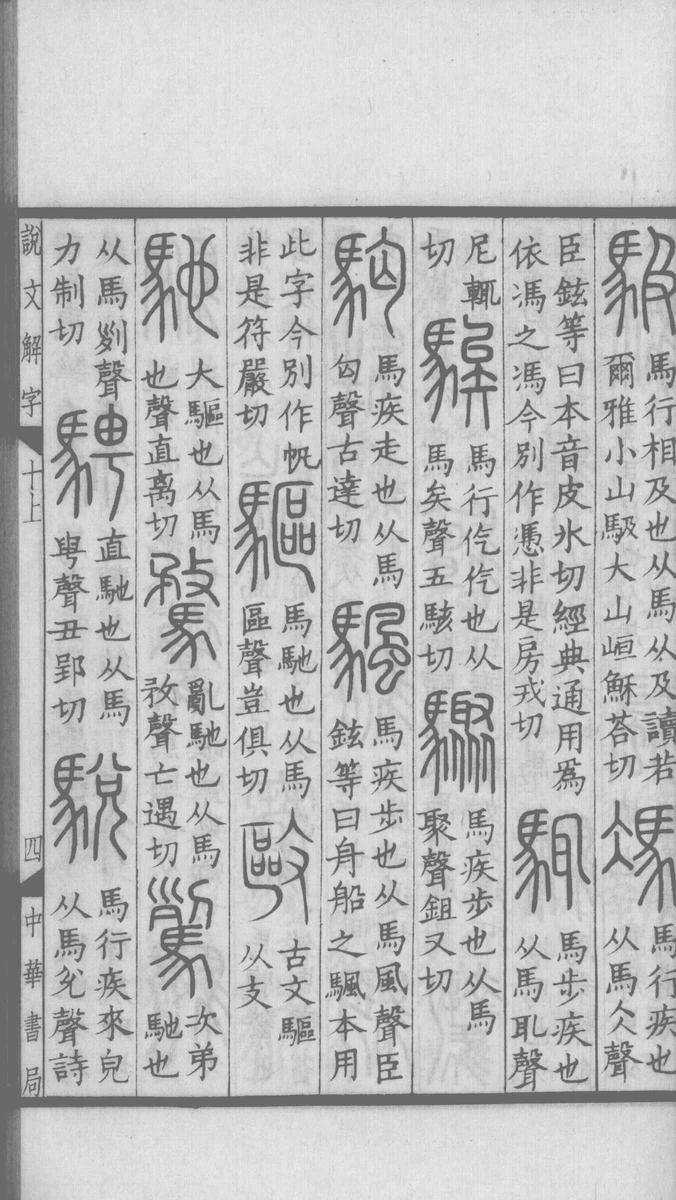 馺馬行相及也从馬从及讀若
爾雅小山馺大山峘穌荅切
馮馬行疾也
从馬仌聲
臣鉉等曰本音皮冰切經典通用爲
依馮之馮今別作憑非是房戎切
馬步疾也
从馬耴聲
尼輒
切
騃馬行仡仡也从
馬矣聲五駭切
驟馬疾步也从馬
聚聲鉏又切
馬疾走也从馬
匃聲古達切
颿馬疾步也从馬風聲臣
鉉等曰舟船之颿本用
此字今別作帆
非是符嚴切
驅馬馳也从馬
區聲豈俱切
敺古文驅
从攴
馳大驅也从馬
也聲直离切
騖亂馳也从馬
敄聲亡遇切
次弟
馳也
从馬𠛱聲
力制切
騁直馳也从馬
甹聲丑郢切
駾馬行疾來皃
从馬兌聲詩
說文解字
十上
四
中華書局